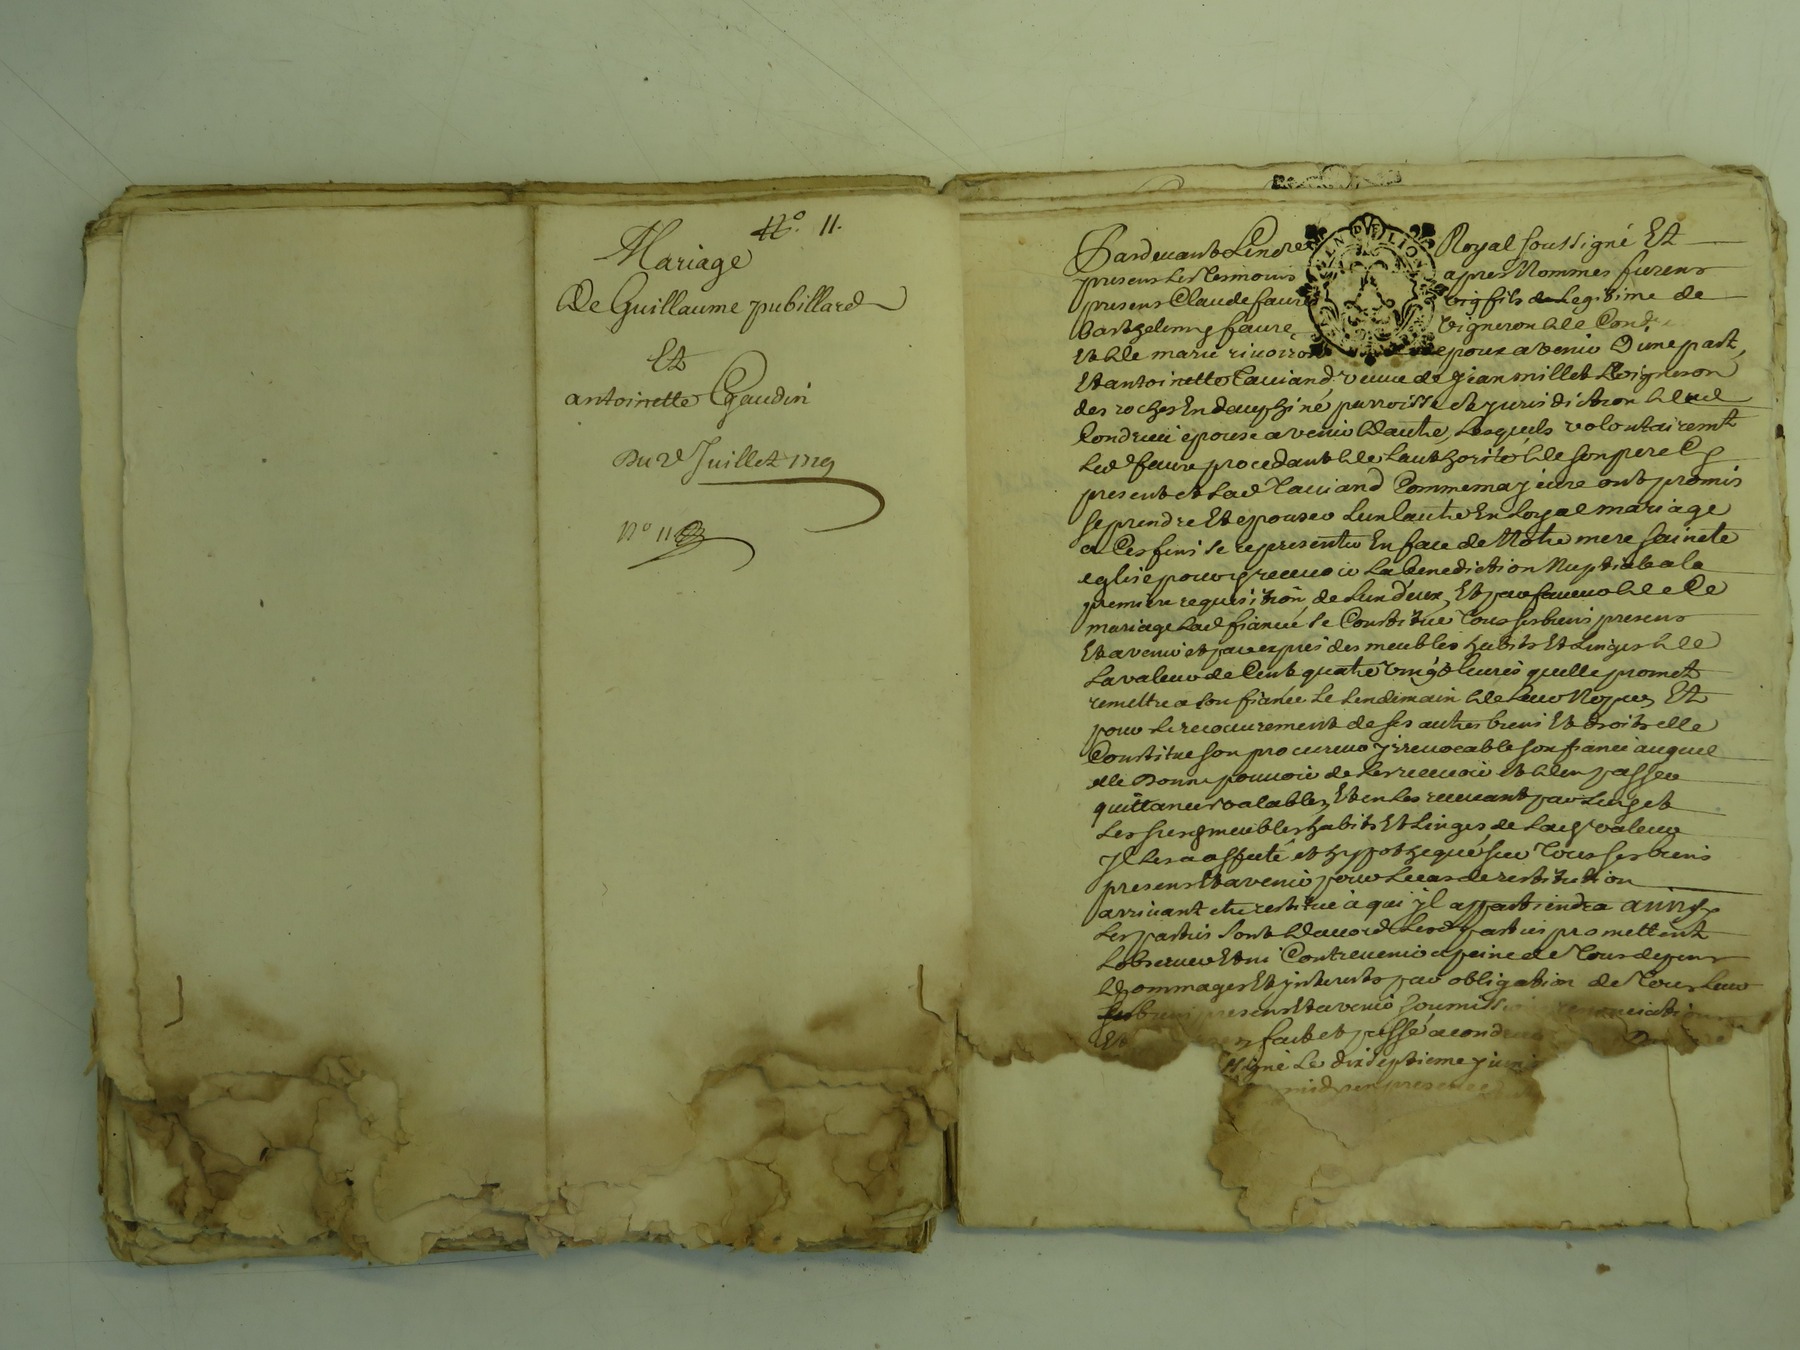 N.º 11.
Mariage
De Guillaume pubillard
Et
antoinette Gaudin
Du 2e Juillet 1719
Nº 11
GEN DE LION
Pardevant Le No.re Royal soussigné Et
presens Les Tesmoins apres Nommes furent
presens Claude faure vig fils Legitime de
Barthelemy faure vigneron de Cond
Et de marie rivoiron epoux avenir D'une part,
Et antoinette Taviand veuve de jean millet Vigneron
des roches En dauphiné parroisse Et jurisdiction de
Condrieu epouse avenir D'autre, Lesquels volontairemt
Led faure procedant de Lauthorité de son pere Cy
present et Lad Taviand Comme majeure ont promis
se prendre Et epouser L'un L'autre En Loyal mariage
a Ces fins se representer En face de Notre mere sainete
eglise pour y recevoir La benediction Nuptiale a la
premiere requisition de L'un d'eux, Et par faveur de Ce
mariage Lad fiancée se Constitue Tous ses biens presens
Et avenir et par exprés des meubles habits Et Linges de
La valeur de Cent quatre vingt Livres quelle promet
remettre a son fiancé Le Lendemain de Leur Nopces, Et
pour Le recouvrement de ses autres biens Et droits elle
Constitue son procureur yrrevocable son fiancé auquel
elle Donne pouvoir de Les recevoir Et d'en passer
quittances valables, Et en Les recevant par Luy Et
Les susd meubles habits Et Linges de Lad valeur
yl Les a assuté et hypothequé sur Tous ses biens
presens Et avenir pour Le cas de restitution
arrivant etre restitué a qui yl appartiendra ainsy
Les parties sont D'accord Lesd parties promettent
L'observer Et ni Contrevenir a peine de Tous depens
Dommages Et ynterests par obligation de Tous Leur
biens presens Et avenir soumission renonciation
Et fait et passé a condrieu
signé Le dixseptieme juin
midy en presence